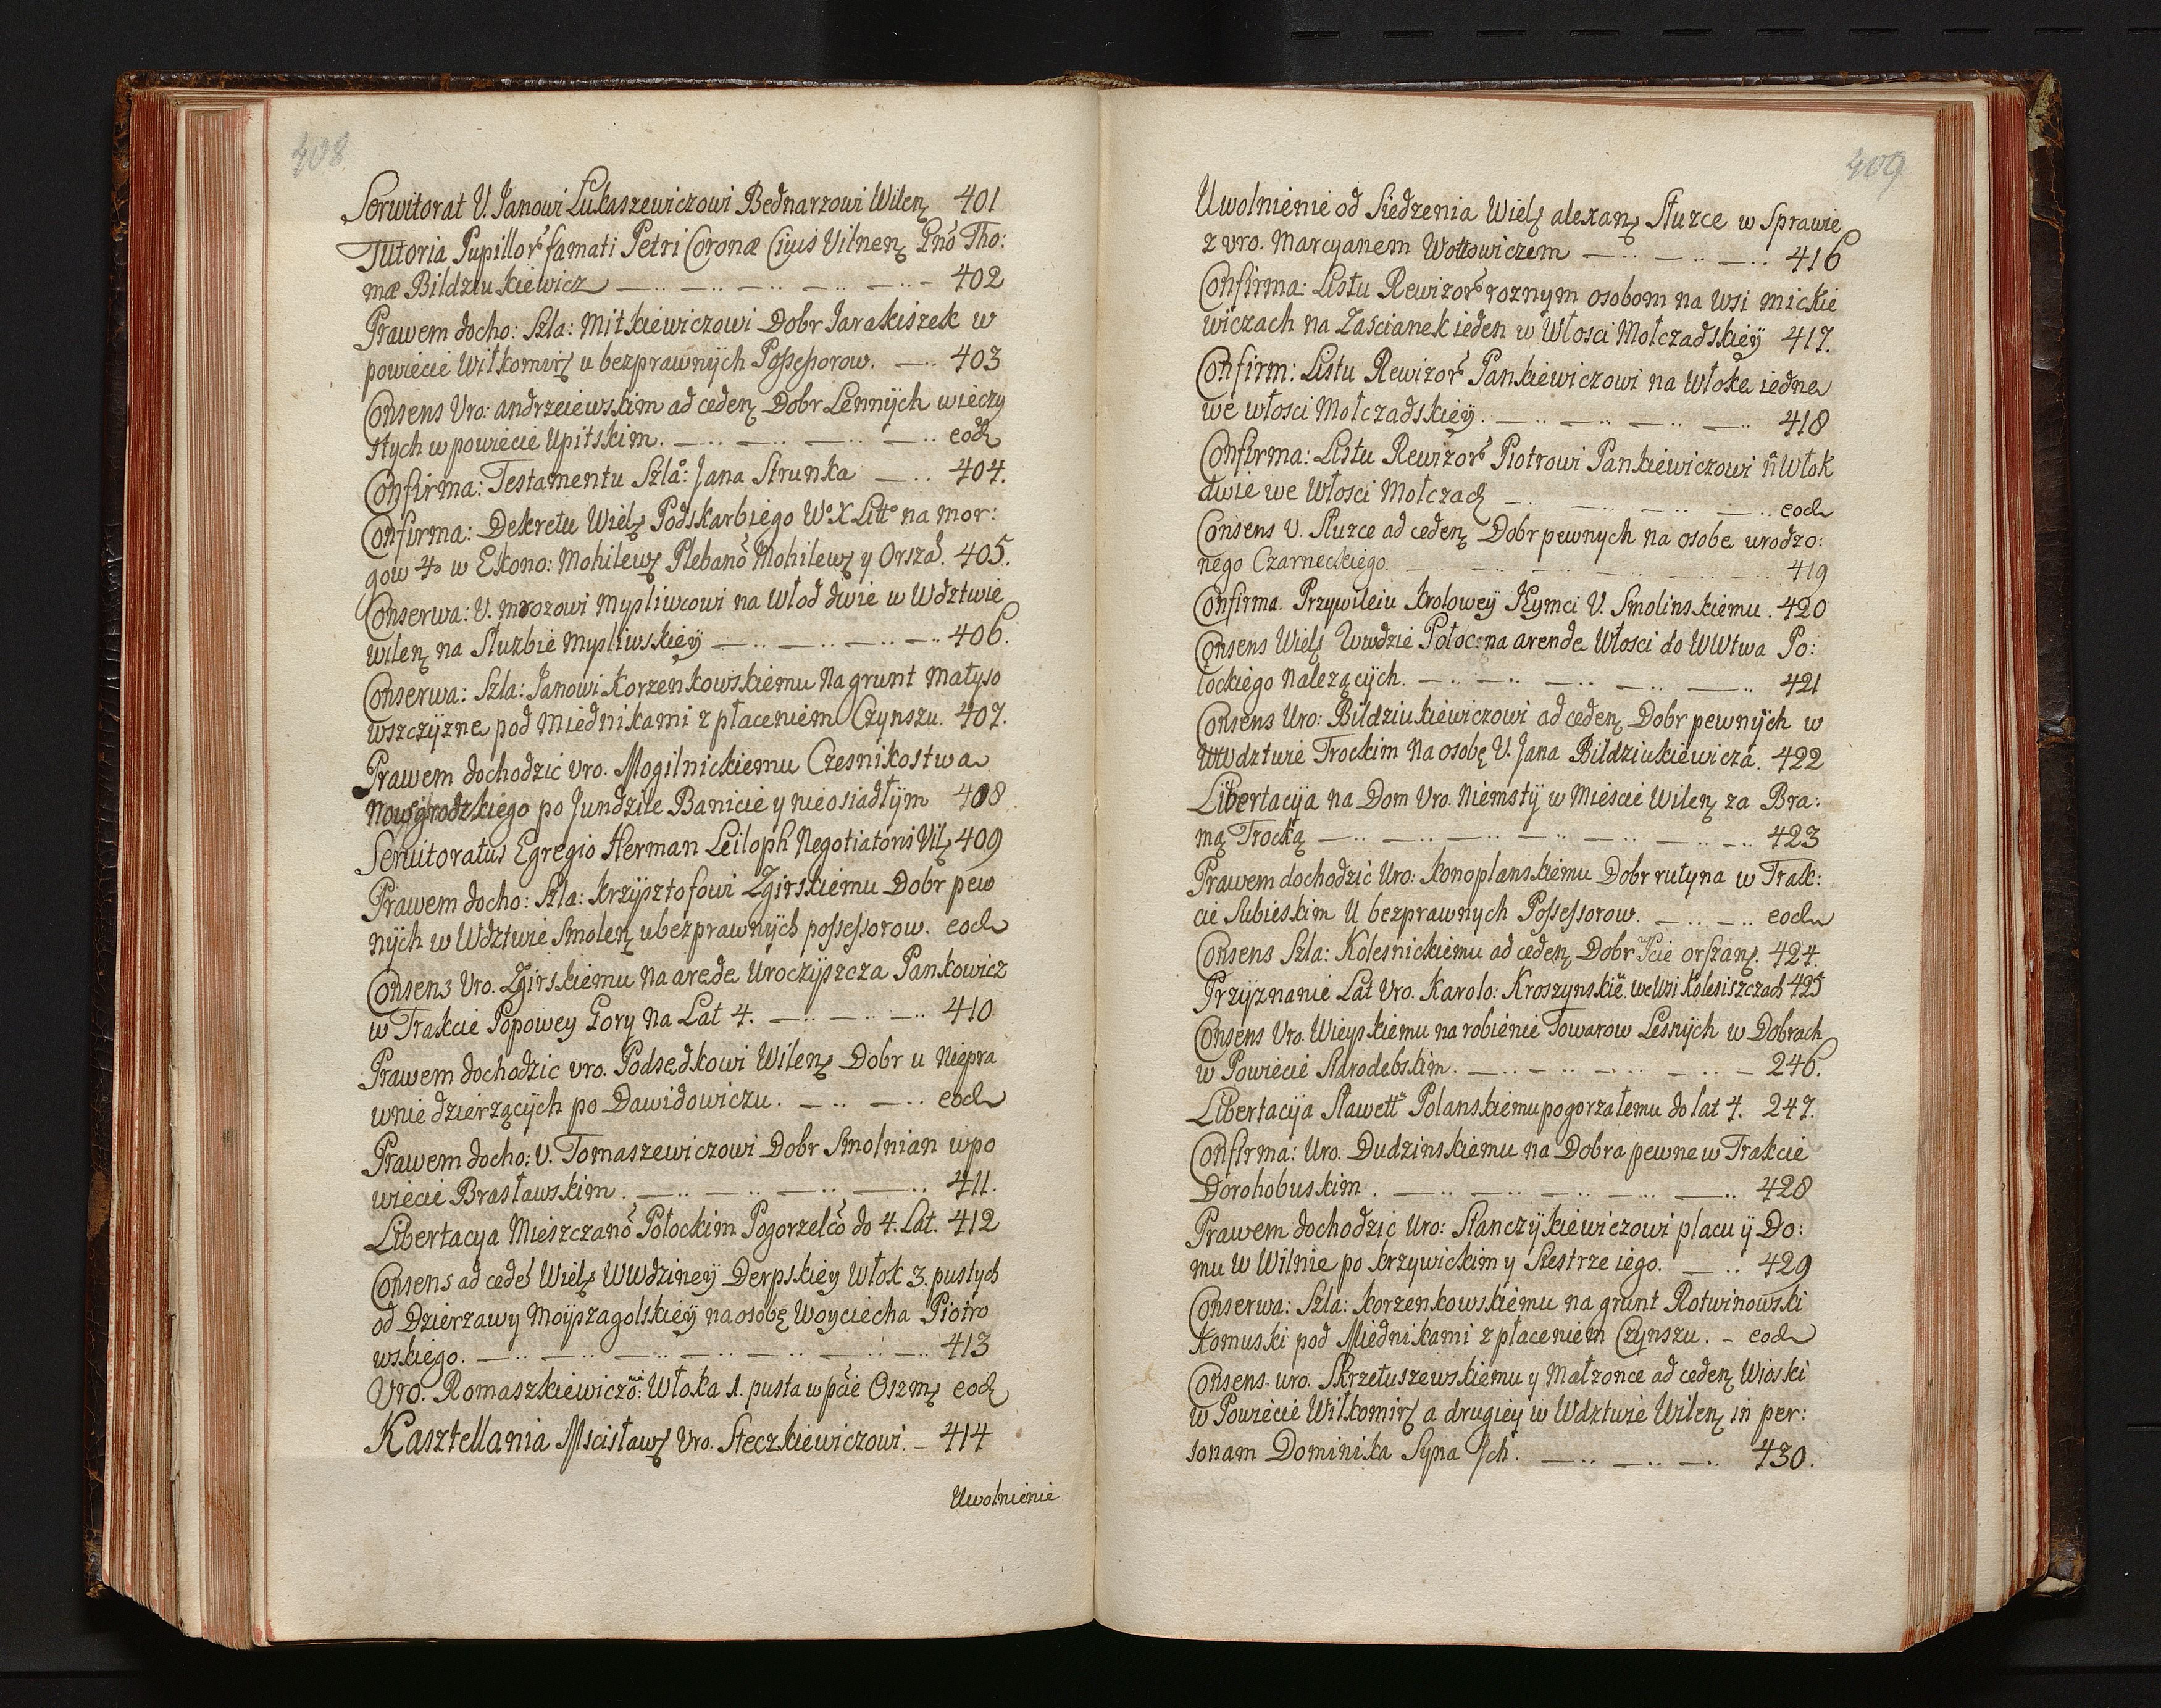 408
Serwitorat U. Janowi Łukaszewiczowi Bednarzowi Wilen 401
Tutoria Pupillor famati Petri Coronæ Ciuis Vilnen Gnõ Tho:
mæ Bildziukiewicz 402
Prawem docho: Szla: Mitkiewiczowi Dobr Jarakiszek w
powiecie Wiłkomir u bezprawnÿch Possessorow. 403
Consens Uro: andrzeiewskim ad ceden Dobr LennÿCh wieczy
stych w powiecie Upitskim. eod
Confirma: Testamentu Szla: Jana Strunka 404.
Confirma: Dekretu Wiel Podskarbiego Wo X Litto na mor:
gow 40 w Ekono: Mohilew Plebanõ Mohilew y Orsza. 405.
Conserwa: U. mrozowi Mysliwcowi na Włod dwie w Wdztwie
wilen na Służbie Mysliwskieÿ 406.
Conserwa: Szla: Janowi Korzenkowskiemu Na grunt Małyso
wszczÿzne pod Miednikami z płaceniem Czynszu. 407.
Prawem dochodzic vro. Mogilnickiemu Czesnikostwa
Nowgrodzkiego po Jundzile Banicie y nieosiadłÿm 408
Seruitoratus Egregio Herman Leiloph Negotiatoris Vil 409
Prawem docho: Szla: krzÿsztofowi Zgirskiemu Dobr pew
nÿch w Wdztwie Smolen u bezprawnÿch possessorow. eod
Consens Vro. Zgirskiemu Na arede Uroczÿszcza Pankowicz
w Trakcie Popowey Gory Na Lat 4. 410
Prawem dochodzic vro. Podsedkowi Wilen Dobr u Niepra
wnie dzierzącÿch po Dawidowiczu. eod
Prawem docho: V. Tomaszewiczowi Dobr Smolnian w po
wiecie Brasławskim. 411.
Libertacya Mieszczanõ Połockim Pogorzelcõ do 4. Lat. 412
Consens ad cede Wiel WWdzineÿ Derpskiey Włok 3. pustych
od Dzierzawy Moÿszagolskieÿ na osobę Woyciecha Piotro
wskiego. 413
Vro. Romaszkiewiczõ: Włoka 1. pusta w pcie Oszm eod
Kasztellania Mscisław Vro. Steczkiewiczowi. 414
Uwolnienie
409
Uwolnienie od Siedzenia Wiel alexan Słuzce w Sprawie
z vro. Marcyanem Wołłowiczem 416
Confirma: Listu Rewizor roznym osobom na wsi mickie
wiczach na Zascianek ieden w Włosci Mołczadskieÿ 417.
Confirm: Listu Rewizor Pankiewiczowi na Włoke iedne
we włosci Mołczadskieÿ. 418
Confirma: Listu Rewizor Piotrowi Pankiewiczowi ñ Włok
dwie we Włosci Mołczad eod
Consens V. Słuzce ad ceden Dobr pewnych na osobe urodzo:
nego Czarneckiego. 419
Confirma. Przywileiu krolowey JKymci V. Smolinskiemu. 420
Consens Wiel Wwdzie Połoc: na arende Włosci do WWtwa Po:
łockiego Nalezącÿch. 421
Consens Uro: Bildziukiewiczowi ad ceden Dobr pewnÿch w
WWdztwie Trockim Na osobę V. Jana Bildziukiewicza. 422
Libertacÿa na Dom Vro. Niemstÿ w Miescie Wilen za Bra:
mą Trocką 423
Prawem dochodzić Uro: Konoplanskiemu Dobr rutyna w Trak:
cie Subieskim U bezprawnych Possessorow. eod
Consens Szla: Kolesnickiemu ad ceden Dobr w Pcie orszan. 424.
Przÿznanie Lat Vro. Karolo: Kroszynskiẽ. we Wsi Kolesiszczach 425
Consens Vro. Wieyskiemu na robienie Towarow Lesnÿch w Dobrach
w Powiecie Starodebskim. 246.
Libertacÿa Sławett Polanskiemu pogorzałemu do lat 4. 247.
Confirma: Uro. Dudzinskiemu na Dobra pewne w Trakcie
Dorohobuskim. 428
Prawem dochodzić Uro: Stanczÿkiewiczowi placu ÿ Do:
mu w Wilnie po krzywickim y Siestrze iego. 429
Conserwa: Szla: korzenkowskiemu na grunt Rotwinowski
Komuski pod Miednikami z płaceniem Czynszu. eod
Consens uro. Skrzetuszewskiemu y Małzonce ad ceden Wioski
w Powiecie Wiłkomir a drugiey w Wdztwie Wilen in per:
sonam Dominika Syna Jch. 430.